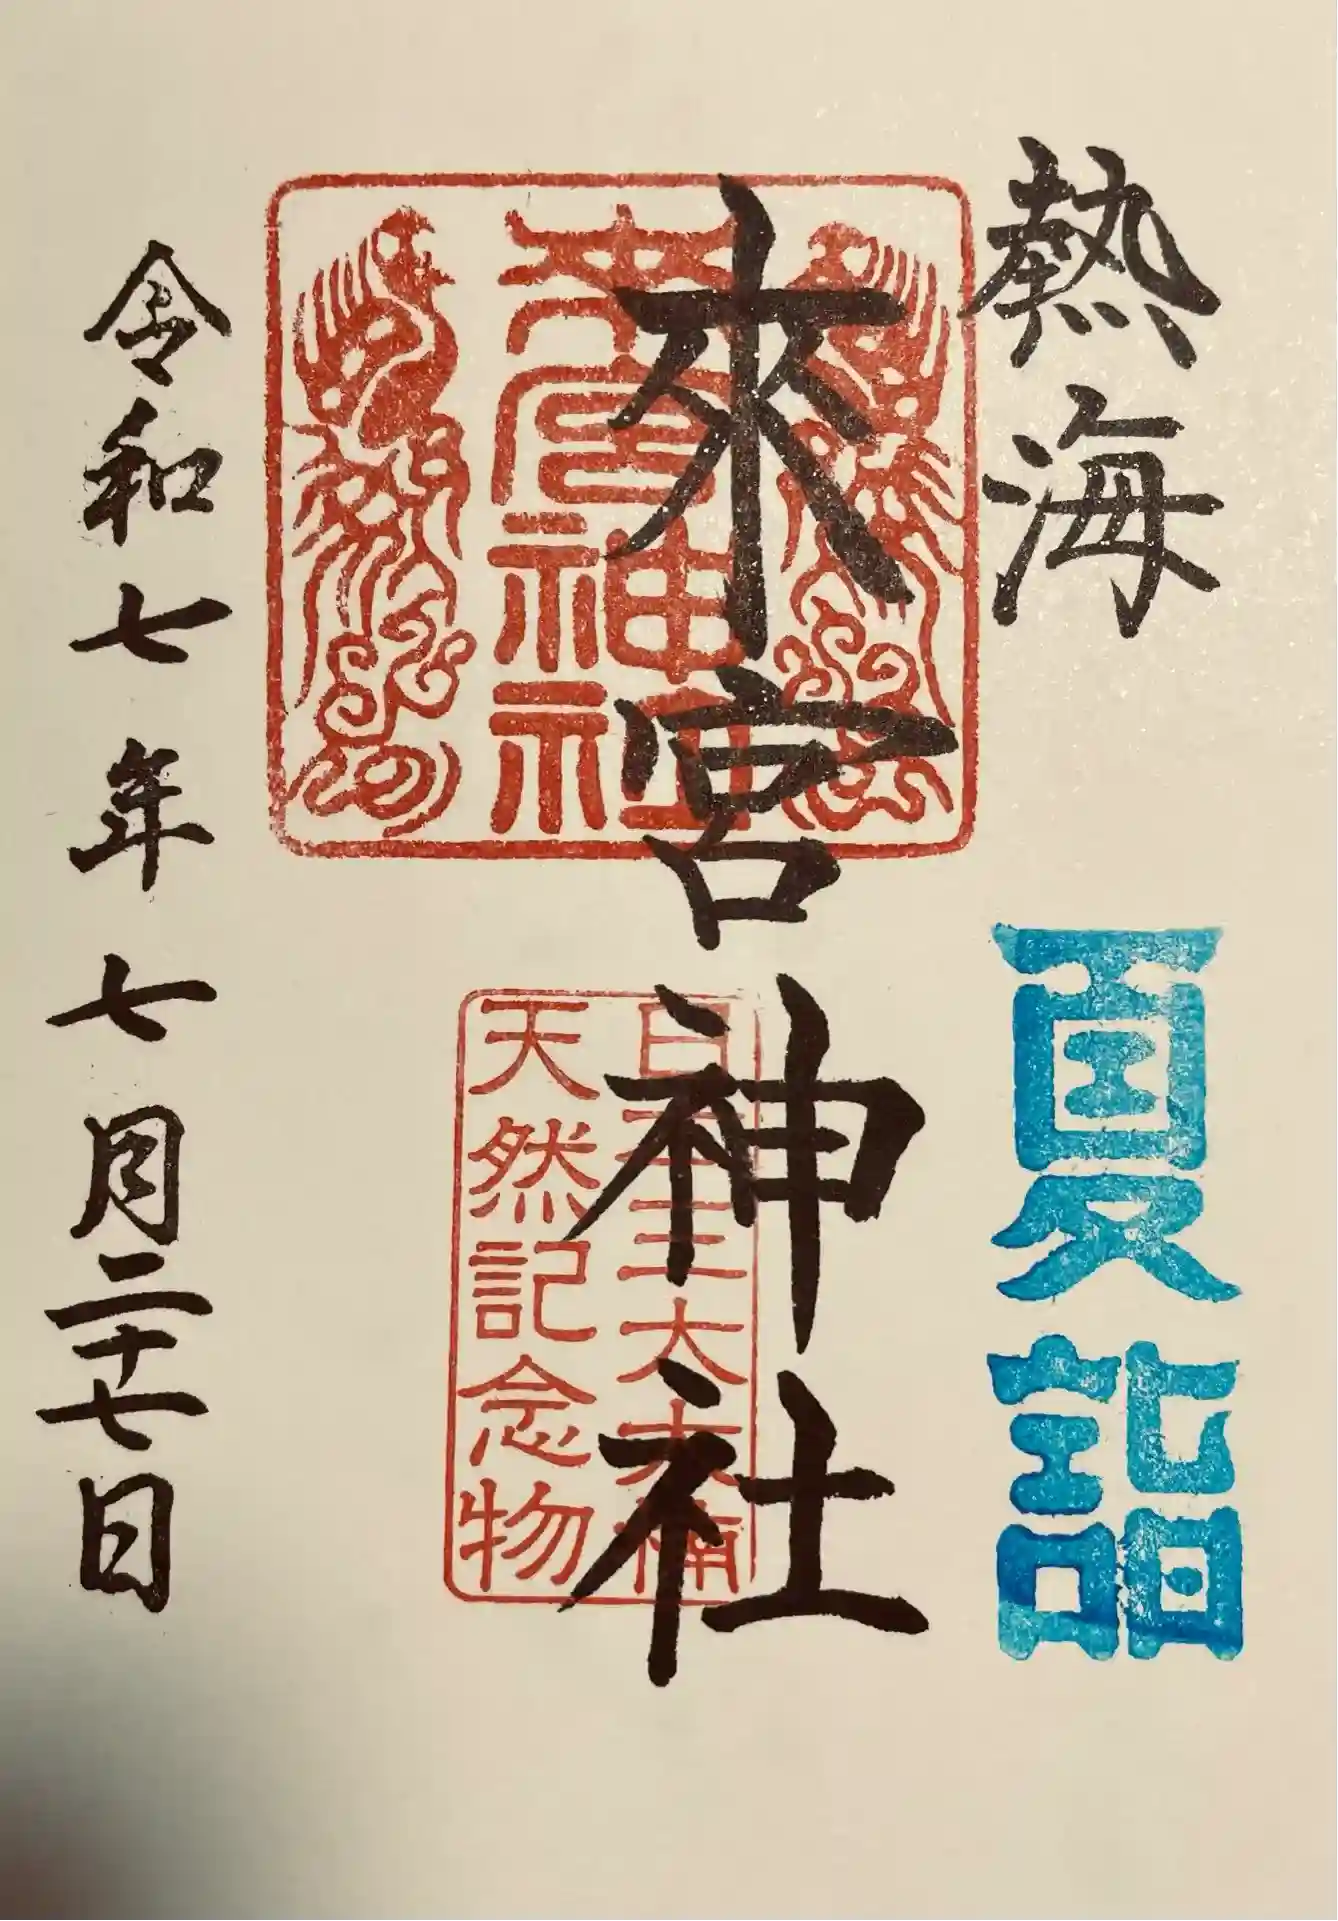 熱海
夏詣
來宮神社
來宮神社
日本三大大楠
天然記念物
令和七年七月二十七日